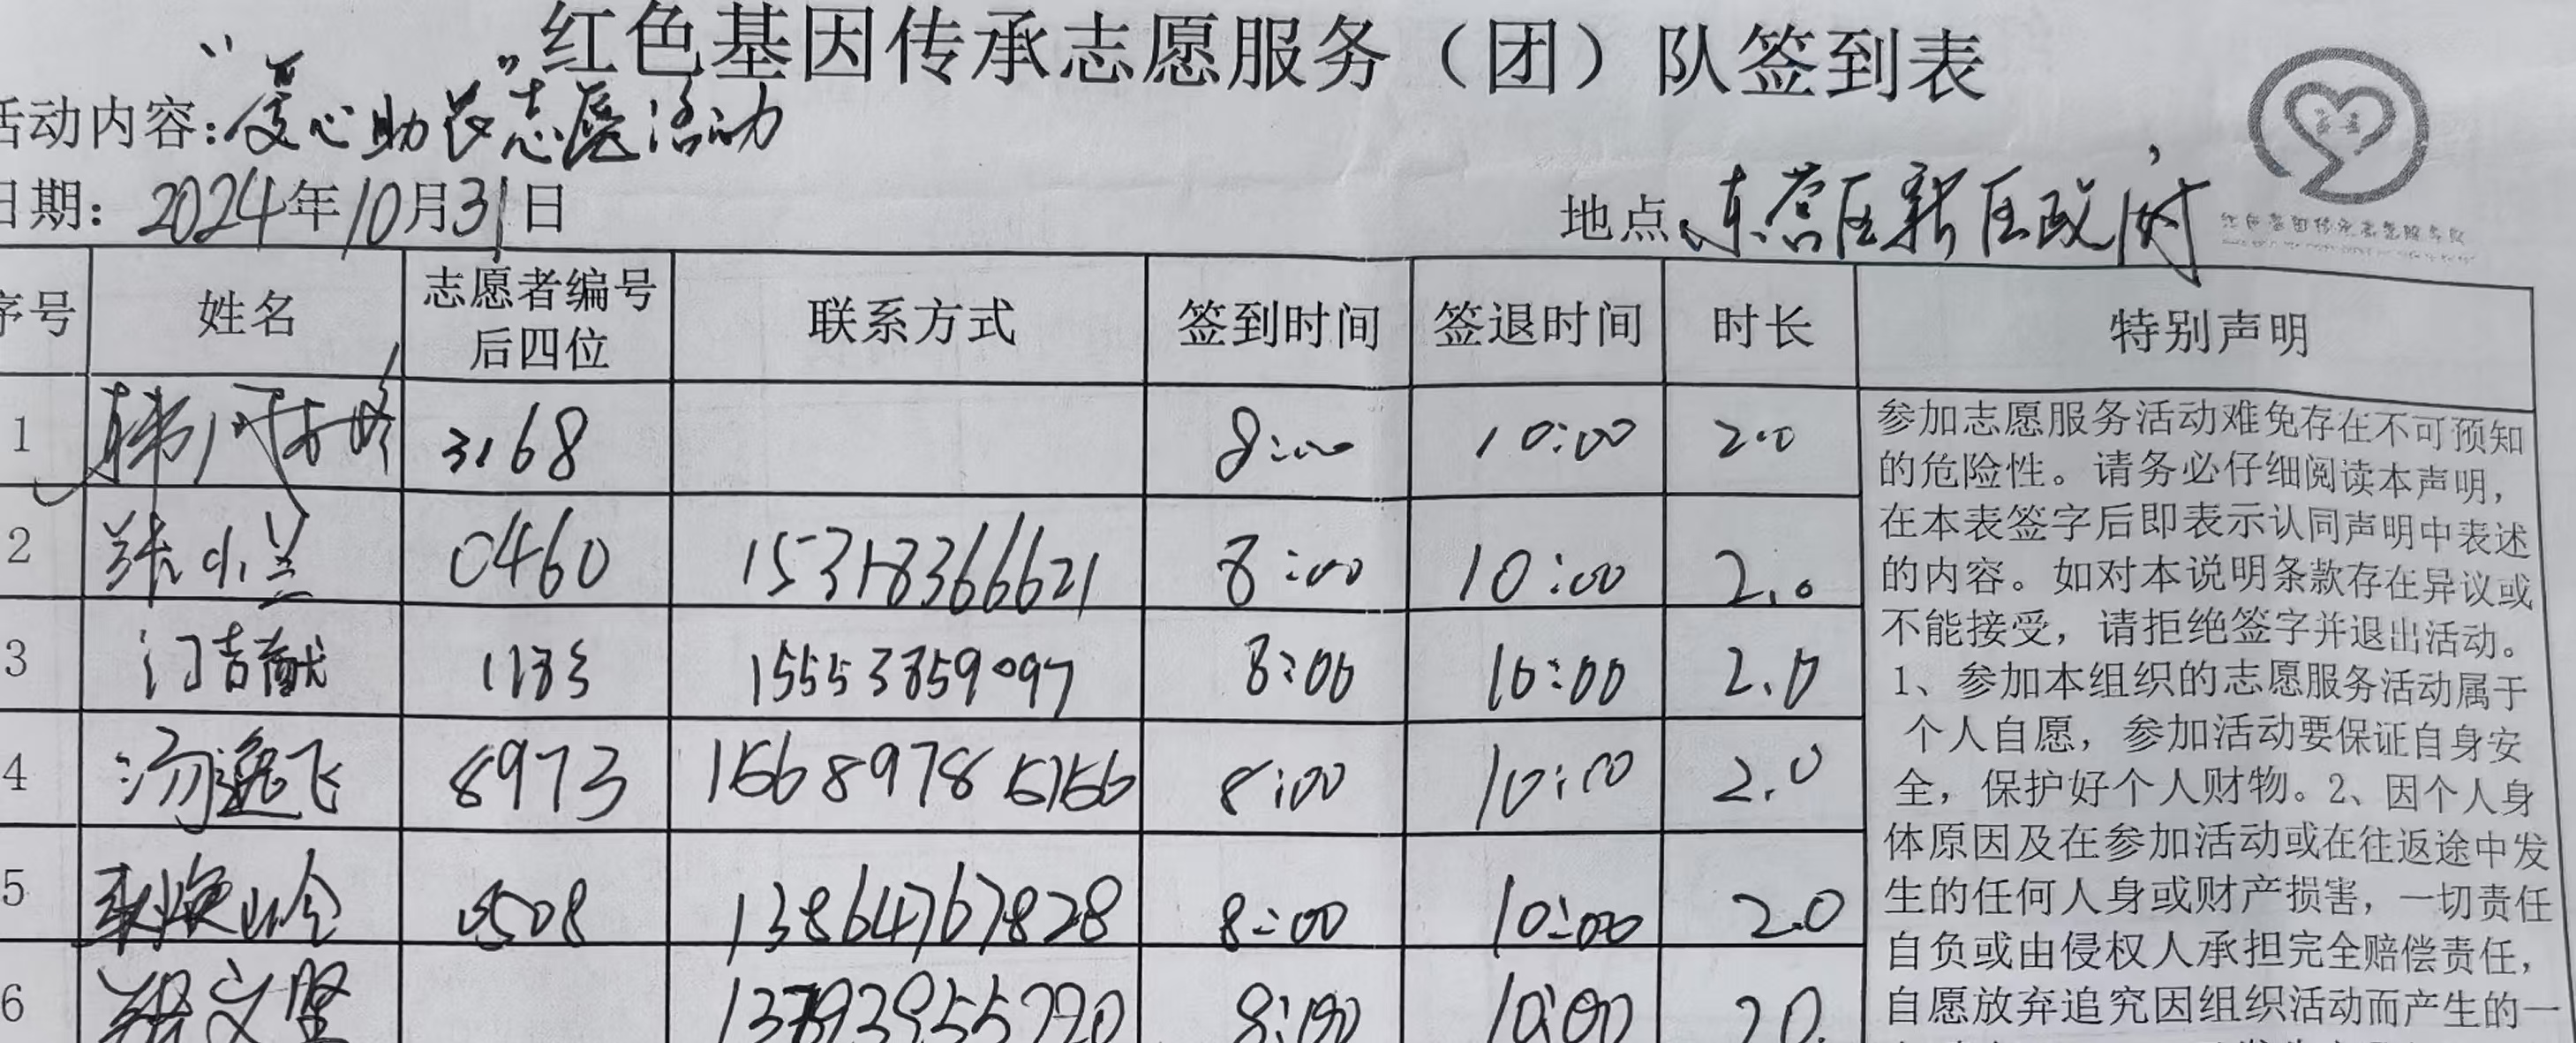 红色基因传承志愿服务（团）队签到表
活动内容："爱心助农"志愿活动
日期：2024年10月31日
地点：东营区新区政府
序号 姓名 志愿者编号后四位 联系方式 签到时间 签退时间 时长 特别声明
1 3168 8:00 10:00 2.0
2 张小兰 0460 15318366621 8:00 10:00 2.0
3 门吉献 1183 15553859097 8:00 10:00 2.0
4 汤逸飞 8973 8:00 10:00 2.0
5 0508 13864767828 8:00 10:00 2.0
6 8:00 10:00 2.0
参加志愿服务活动难免存在不可预知
的危险性。请务必仔细阅读本声明，
在本表签字后即表示认同声明中表述
的内容。如对本说明条款存在异议或
不能接受，请拒绝签字并退出活动。
1、参加本组织的志愿服务活动属于
个人自愿，参加活动要保证自身安
全，保护好个人财物。2、因个人身
体原因及在参加活动或在往返途中发
生的任何人身或财产损害，一切责任
自负或由侵权人承担完全赔偿责任，
自愿放弃追究因组织活动而产生的一